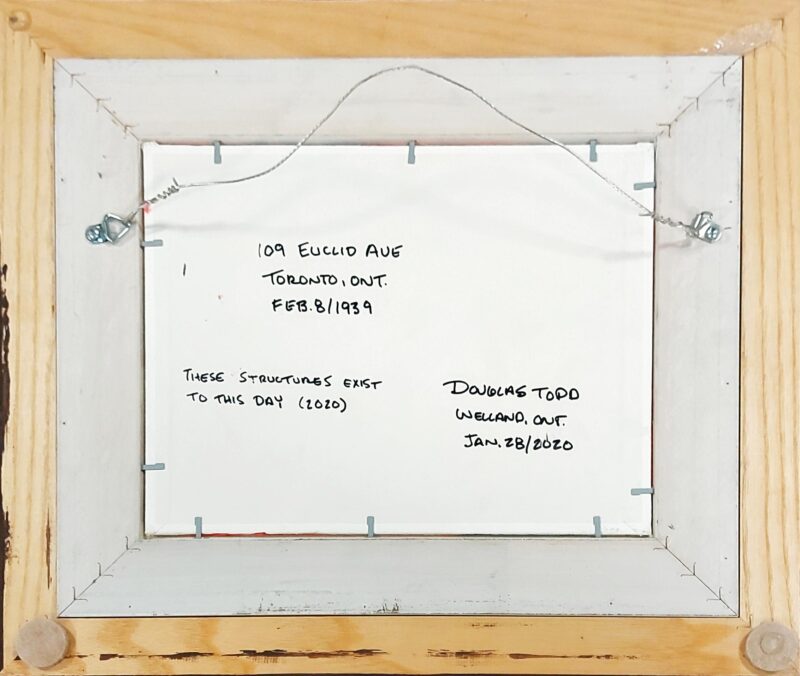 109 EUCLID AVE
TORONTO, ONT.
FEB. 8/1939
THESE STRUCTURES EXIST
TO THIS DAY (2020)
DOUGLAS TODD
WELLAND, ONT.
JAN. 28/2020